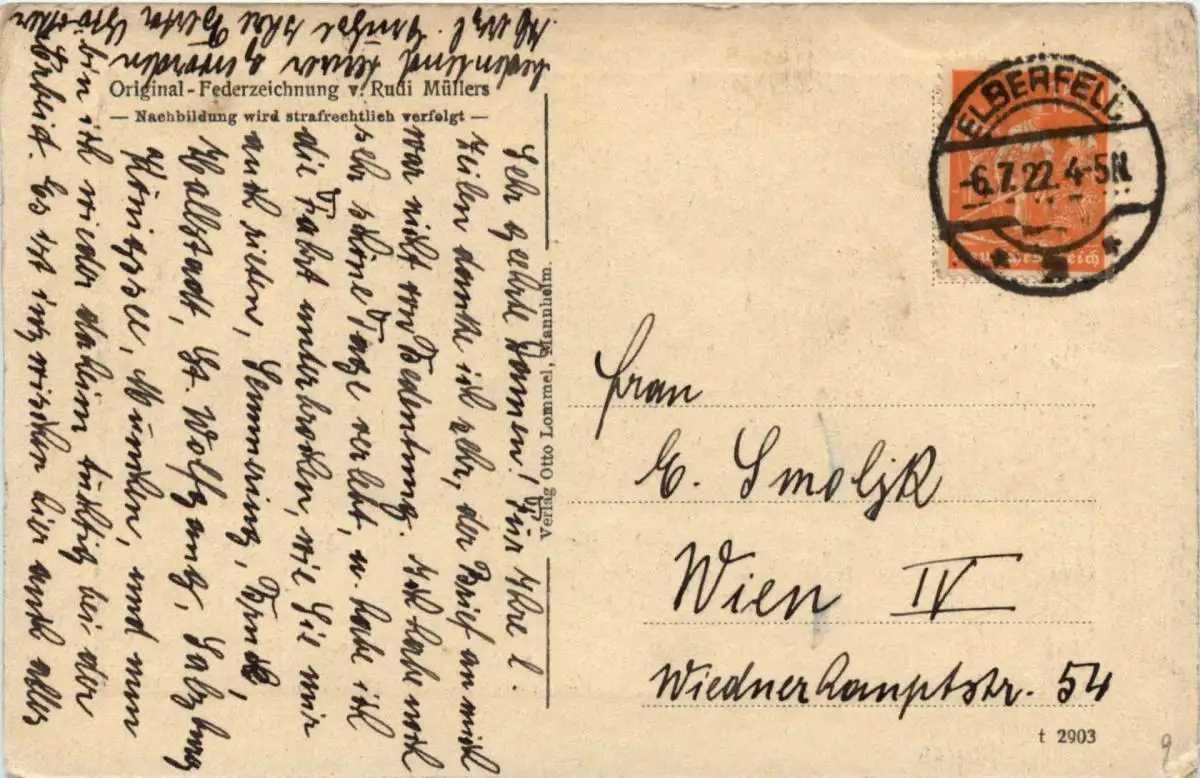 Original-Federzeichnung v. Rudi Müllers
— Nachbildung wird strafrechtlich verfolgt —
Verlag Otto Lommel, Mannheim.
ELBERFELD
-6.7.22.4-5N
* 5 *
Deutsches Reich
Frau
E. Smoljk
Wien IV
Wiednerhauptstr. 54
t 2903
9
Sehr geehrte Damen! Für Ihre l.
Zeilen danke ich sehr, der Brief an mich
war nicht von Bedeutung. Ich habe noch
sehr schöne Tage verlebt, u. habe ich
die Fahrt unterbrochen, wie Sie mir
auch rieten, Semmering, Bruck,
Hallstadt, St. Wolfgang, Salzburg
Königssee, München, und nun
bin ich wieder daheim tüchtig bei der
Arbeit. Es ist inzwischen hier auch alles
bedeutend teurer geworden
Herzl. Grüße Ihre Berta